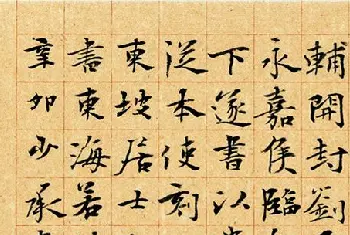 輔開封劉
永嘉侯臨
下遂書以
從本使刻
東坡居士
書東海若
辜如少承